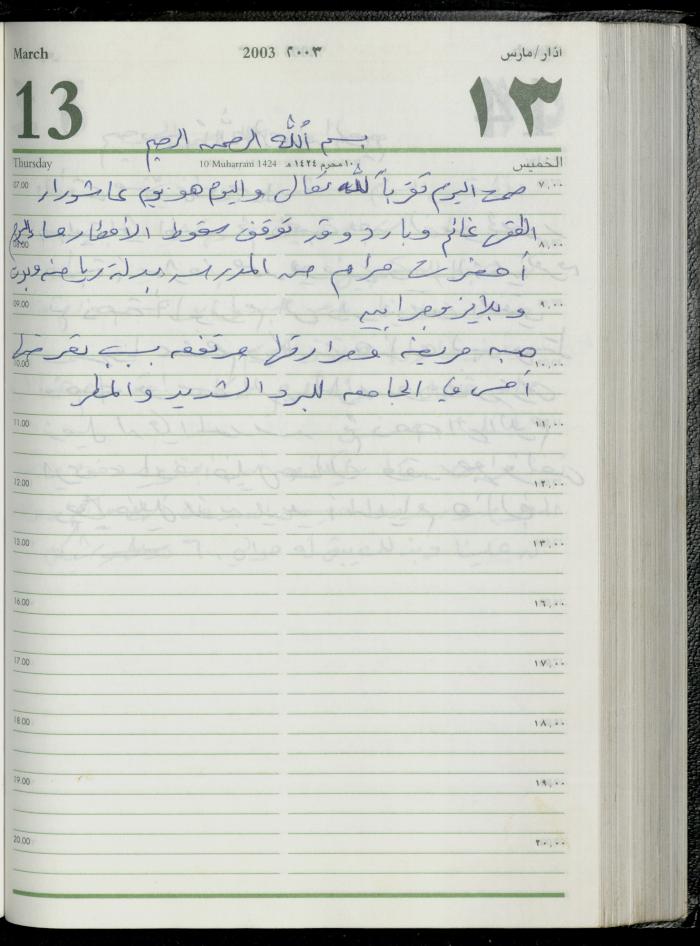 March 2003 ٢٠٠٣ اذار/مارس
13 ١٣
بسم الله الرحمن الرحيم
Thursday 10 Muharram 1424 ١٠ محرم ١٤٢٤ هـ الخميس
07.00 ٧,٠٠
صمت اليوم تقرباً لله تعالى واليوم هو يوم عاشوراء
الطقس غائم وبارد وقد توقف سقوط الأمطار مساء اليوم
08.00 ٨,٠٠
أحضرت مرام من المدرسة بدلة رياضة
09.00 ٩,٠٠
وبلايز وجرابين
هبه مريضة وحرارتها مرتفعه بسبب تعرضها
10.00 ١٠,٠٠
أمس في الجامعه للبرد الشديد والمطر
11.00 ١١,٠٠
12.00 ١٢,٠٠
13.00 ١٣,٠٠
16.00 ١٦,٠٠
17.00 ١٧,٠٠
18.00 ١٨,٠٠
19.00 ١٩,٠٠
20.00 ٢٠,٠٠